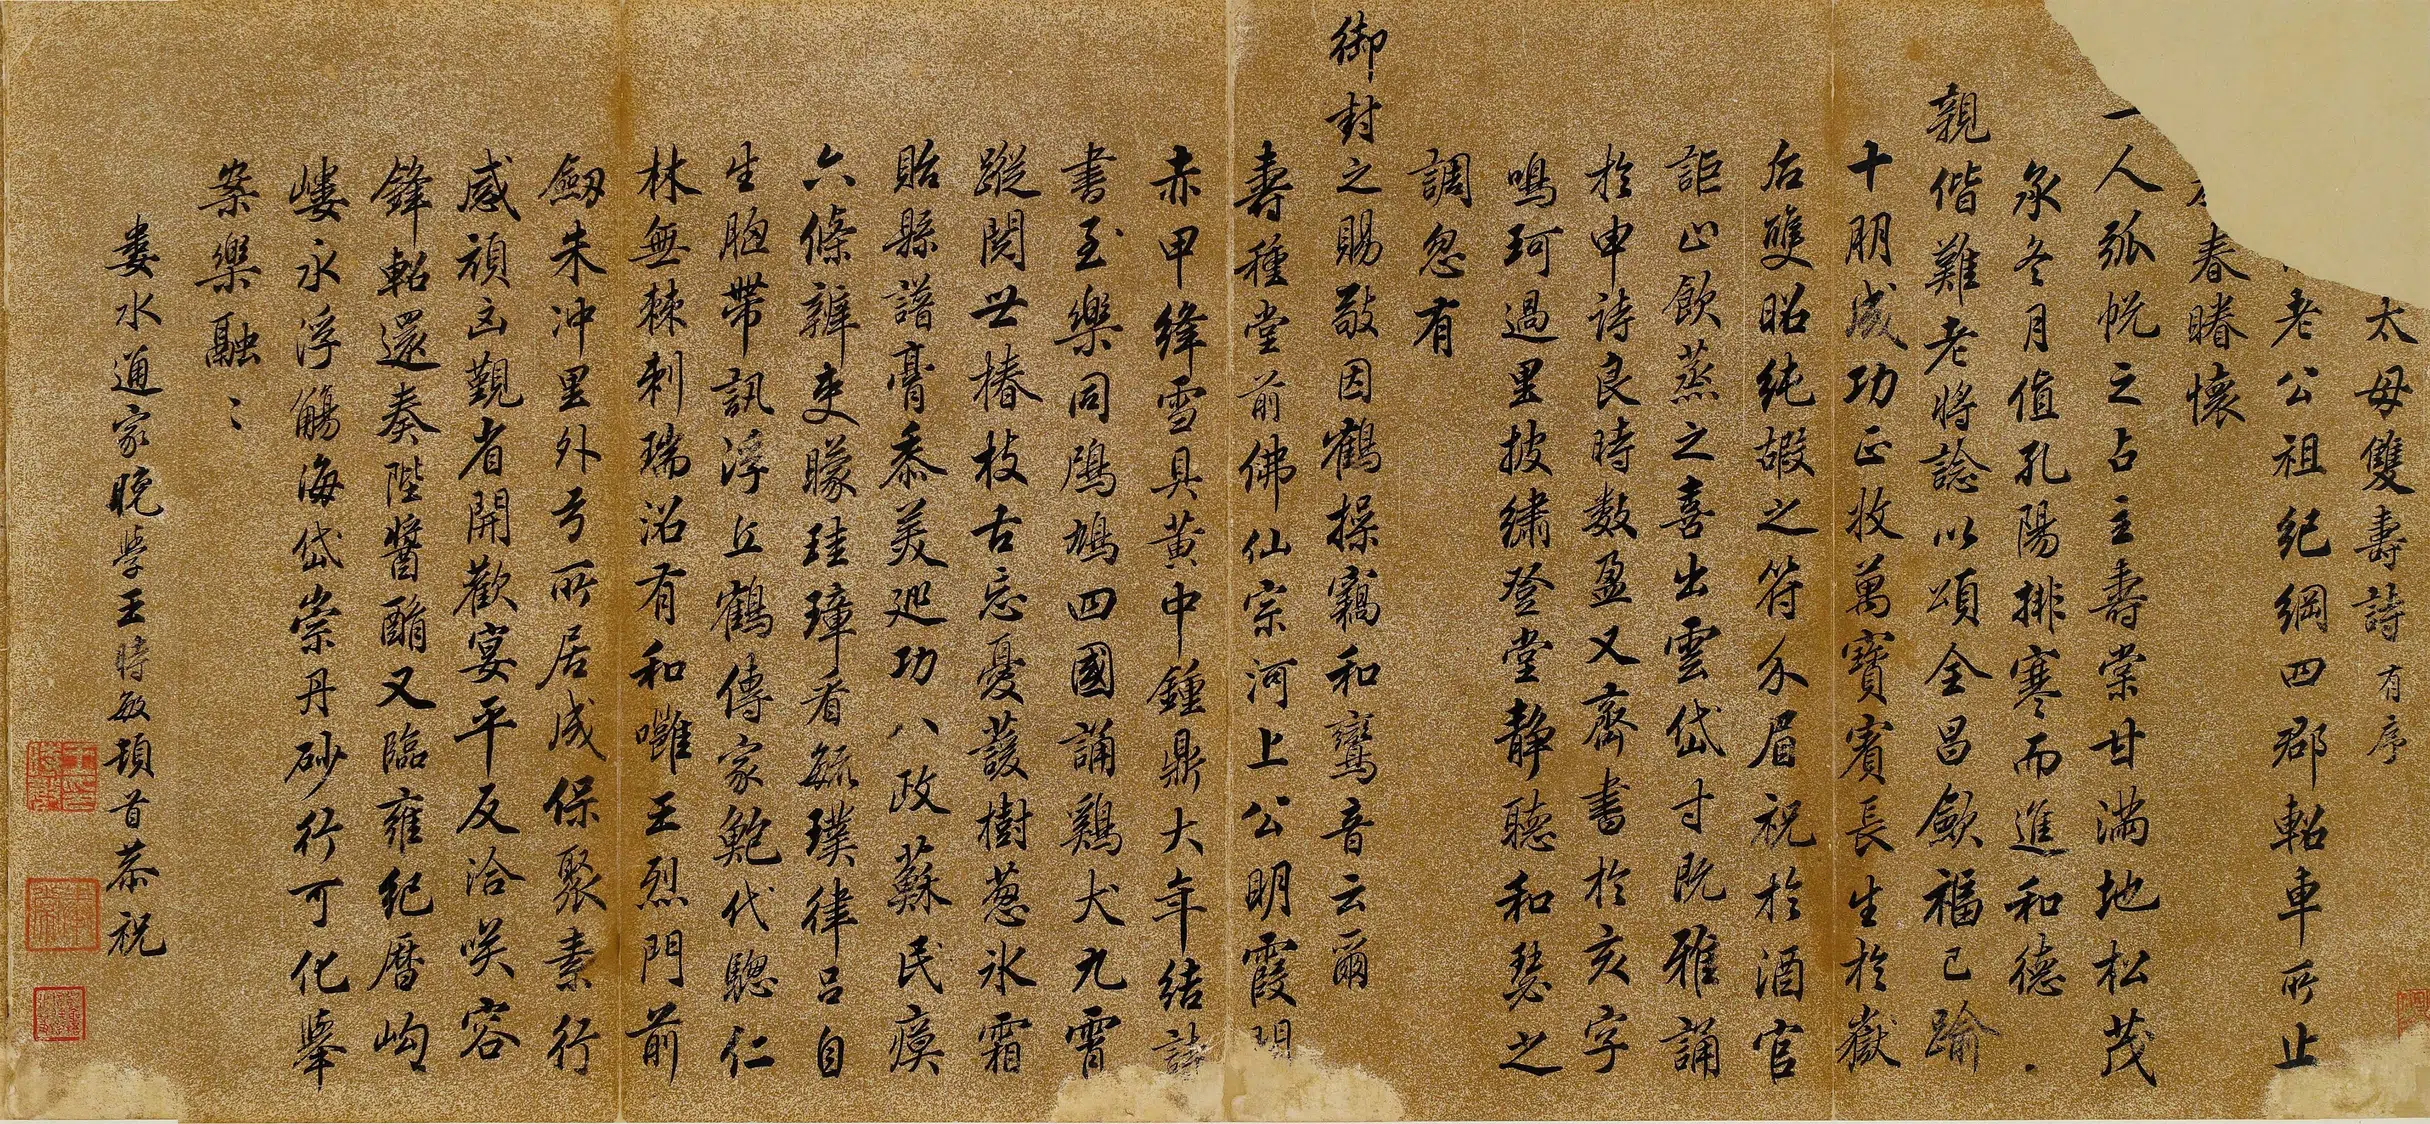 太母雙壽詩有序
老公祖紀綱四郡軺車所止
春睠懷
一人弧帨之占主壽棠甘滿地松茂
永冬月值孔陽排寒而進和德
親偕難老將諗以頌全昌歛福已踰
十朋成功正收萬寶賓長生於嶽
后雙昭純嘏之符介眉祝於酒官
詎止飲蒸之喜出雲岱寸既雅誦
於申詩良時數盈又齊書於亥字
鳴珂過里披繡登堂静聽和瑟之
調忽有
御封之賜敬因鶴操竊和鸞音云爾
壽種堂前佛仙宗河上公明霞
赤甲絳雪具黄中鍾鼎大年結
書至樂同鳲鳩四國誦鷄犬九霄
蹤閱世椿枝古忘憂蘐樹蔥氷霜
貽縣譜膏黍美廵功八政蘇民瘼
六條辭吏矇珪璋看毓璞律呂自
生胞帶訊浮丘鶴傳家鮑代驄仁
林無棘刺瑞沼有和囉王烈門前
劒朱沖里外弓所居成保聚素行
感頑凶觐省開歡宴平反洽咲容
鋒軺還奏陛醬酳又臨雍紀曆岣
嶁永浮觴海岱崇丹砂行可化舉
案樂融〻
婁水通家晚學王時敏頓首恭祝